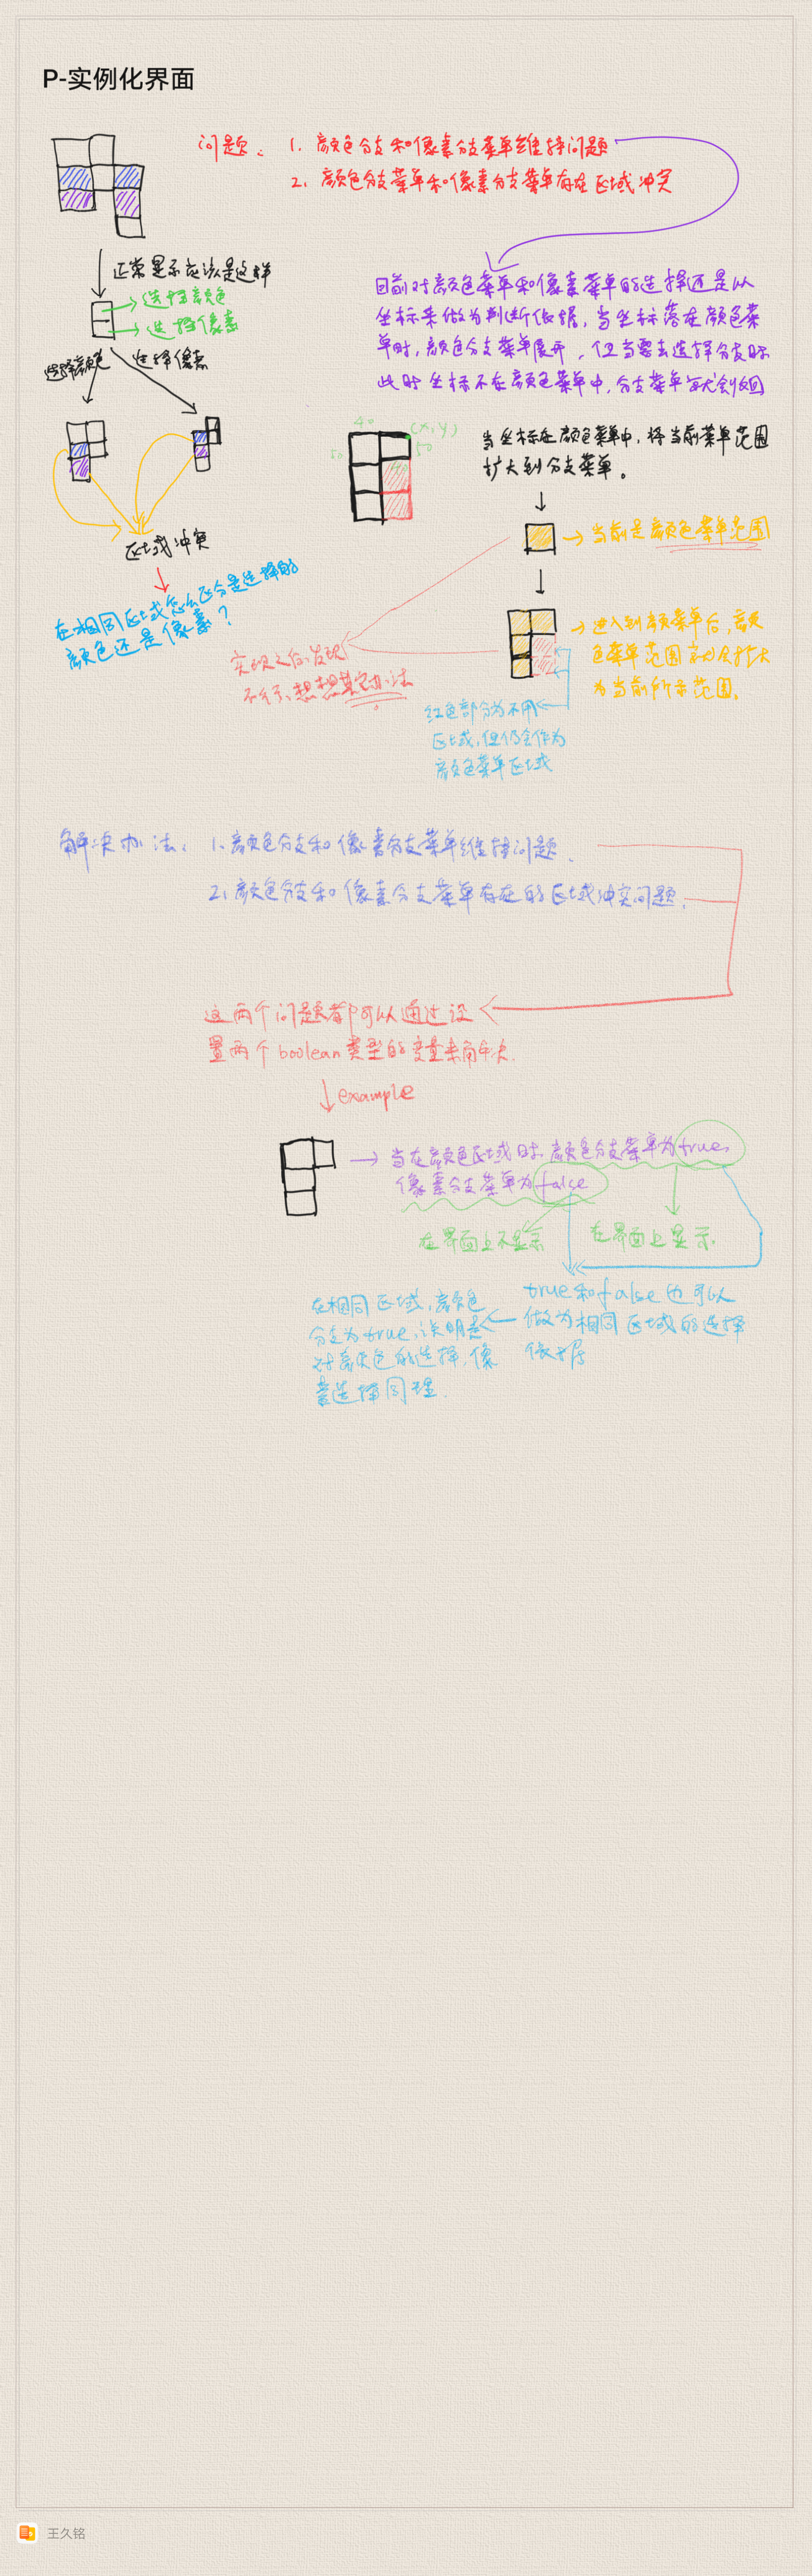 P-实例化界面
问题: 1. 颜色分支和像素分支菜单维持问题
2. 颜色分支菜单和像素分支菜单存在区域冲突
正常显示应该是这样
选择颜色
选择像素
选择颜色 选择像素
区域冲突
在相同区域怎么区分是选择的
颜色还是像素?
目前对颜色菜单和像素菜单的选择还是以
坐标来做为判断依据,当坐标落在颜色菜
单时,颜色分支菜单展开,但当要去选择分支时
此时坐标不在颜色菜单中,分支菜单就会收回
40
(x,y)
50
50
40
当坐标在颜色菜单中,将当前菜单范围
扩大到分支菜单。
当前是颜色菜单范围
进入到颜菜单后,颜
色菜单范围就会扩大
为当前所示范围。
实现之后发现
不行,想想其它办法
红色部分为不用
区域,但仍会作为
颜色菜单区域
解决办法: 1.颜色分支和像素分支菜单维持问题.
2.颜色分支和像素分支菜单存在的区域冲突问题.
这两个问题都可以通过设
置两个boolean类型的变量来解决.
example
当在颜色区域时,颜色分支菜单为true,
像素分支菜单为false
在界面上不显示
在界面上显示.
true和false也可以
做为相同区域的选择
依据
在相同区域,颜色
分支为true,说明是
对颜色的选择,像
素选择同理.
王久铭